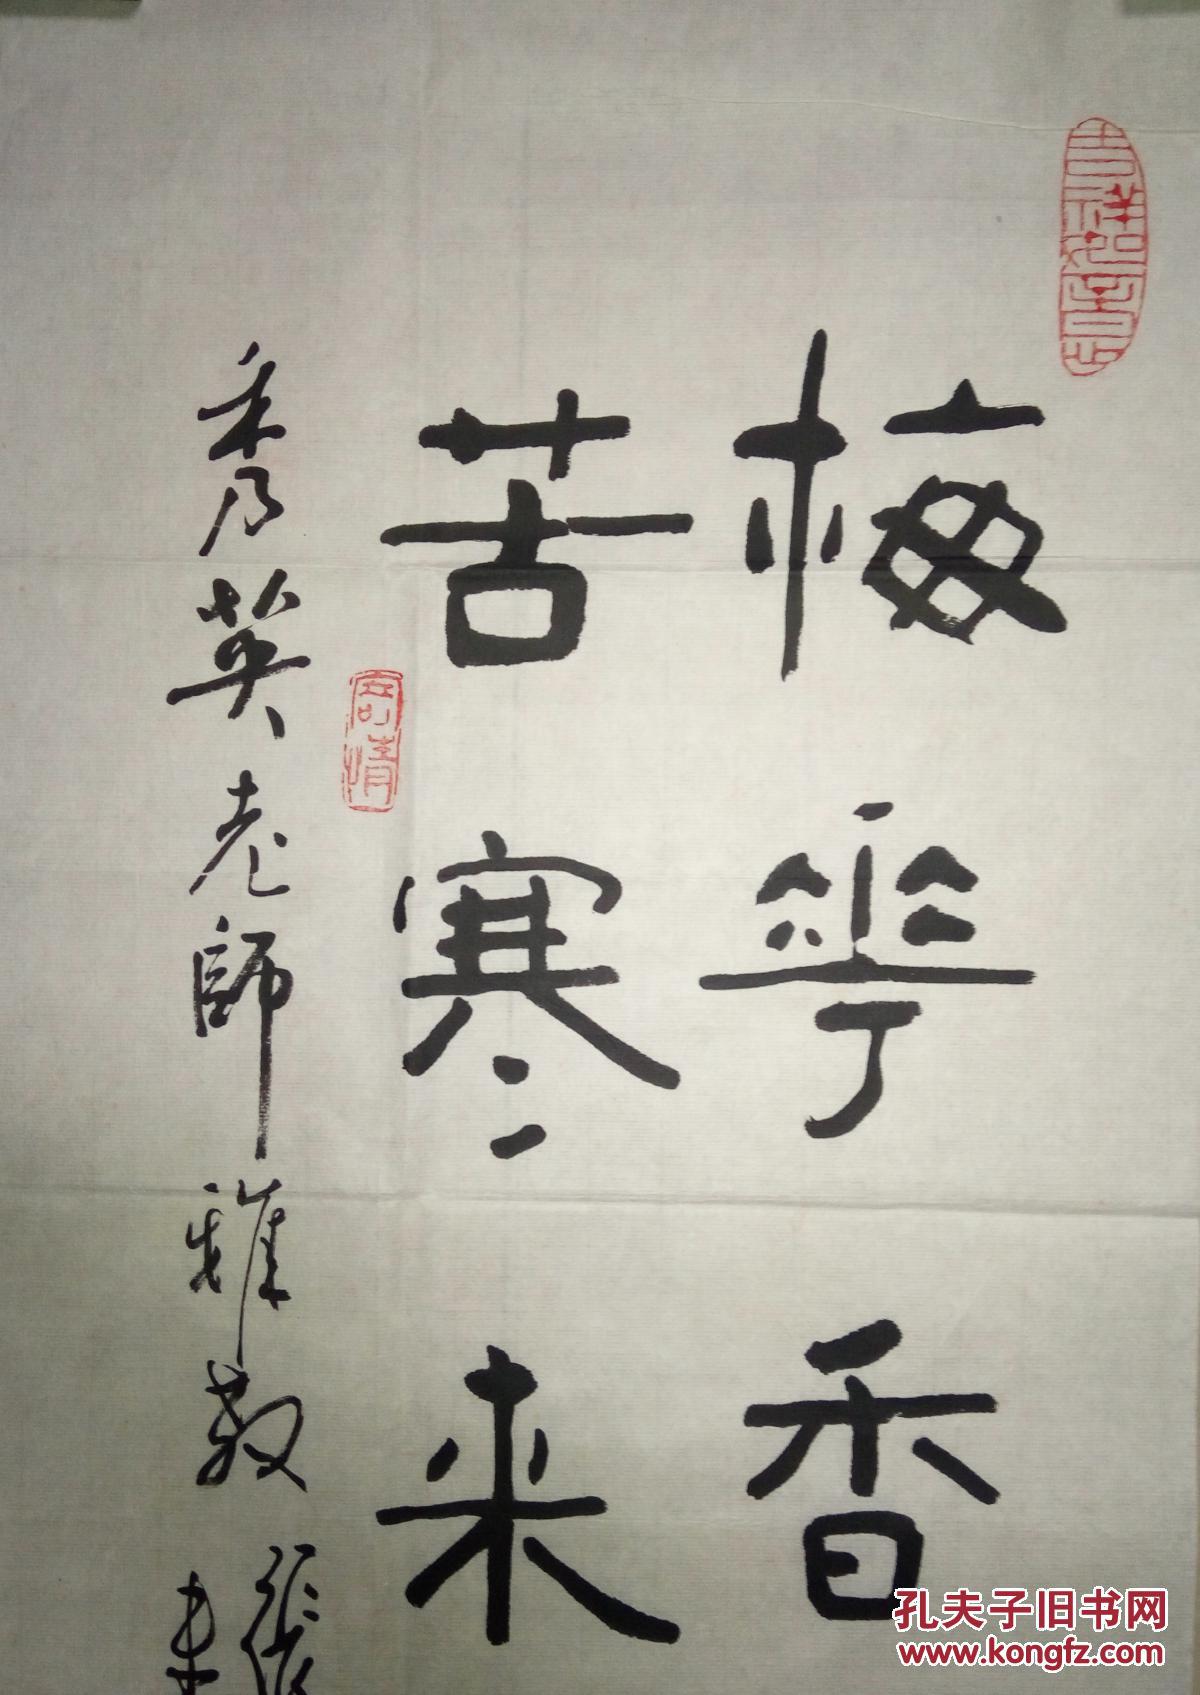 吉祥如意
梅花香
苦寒来
寄情
秀英老師雅教
張
孔夫子旧书网
www.kongfz.com